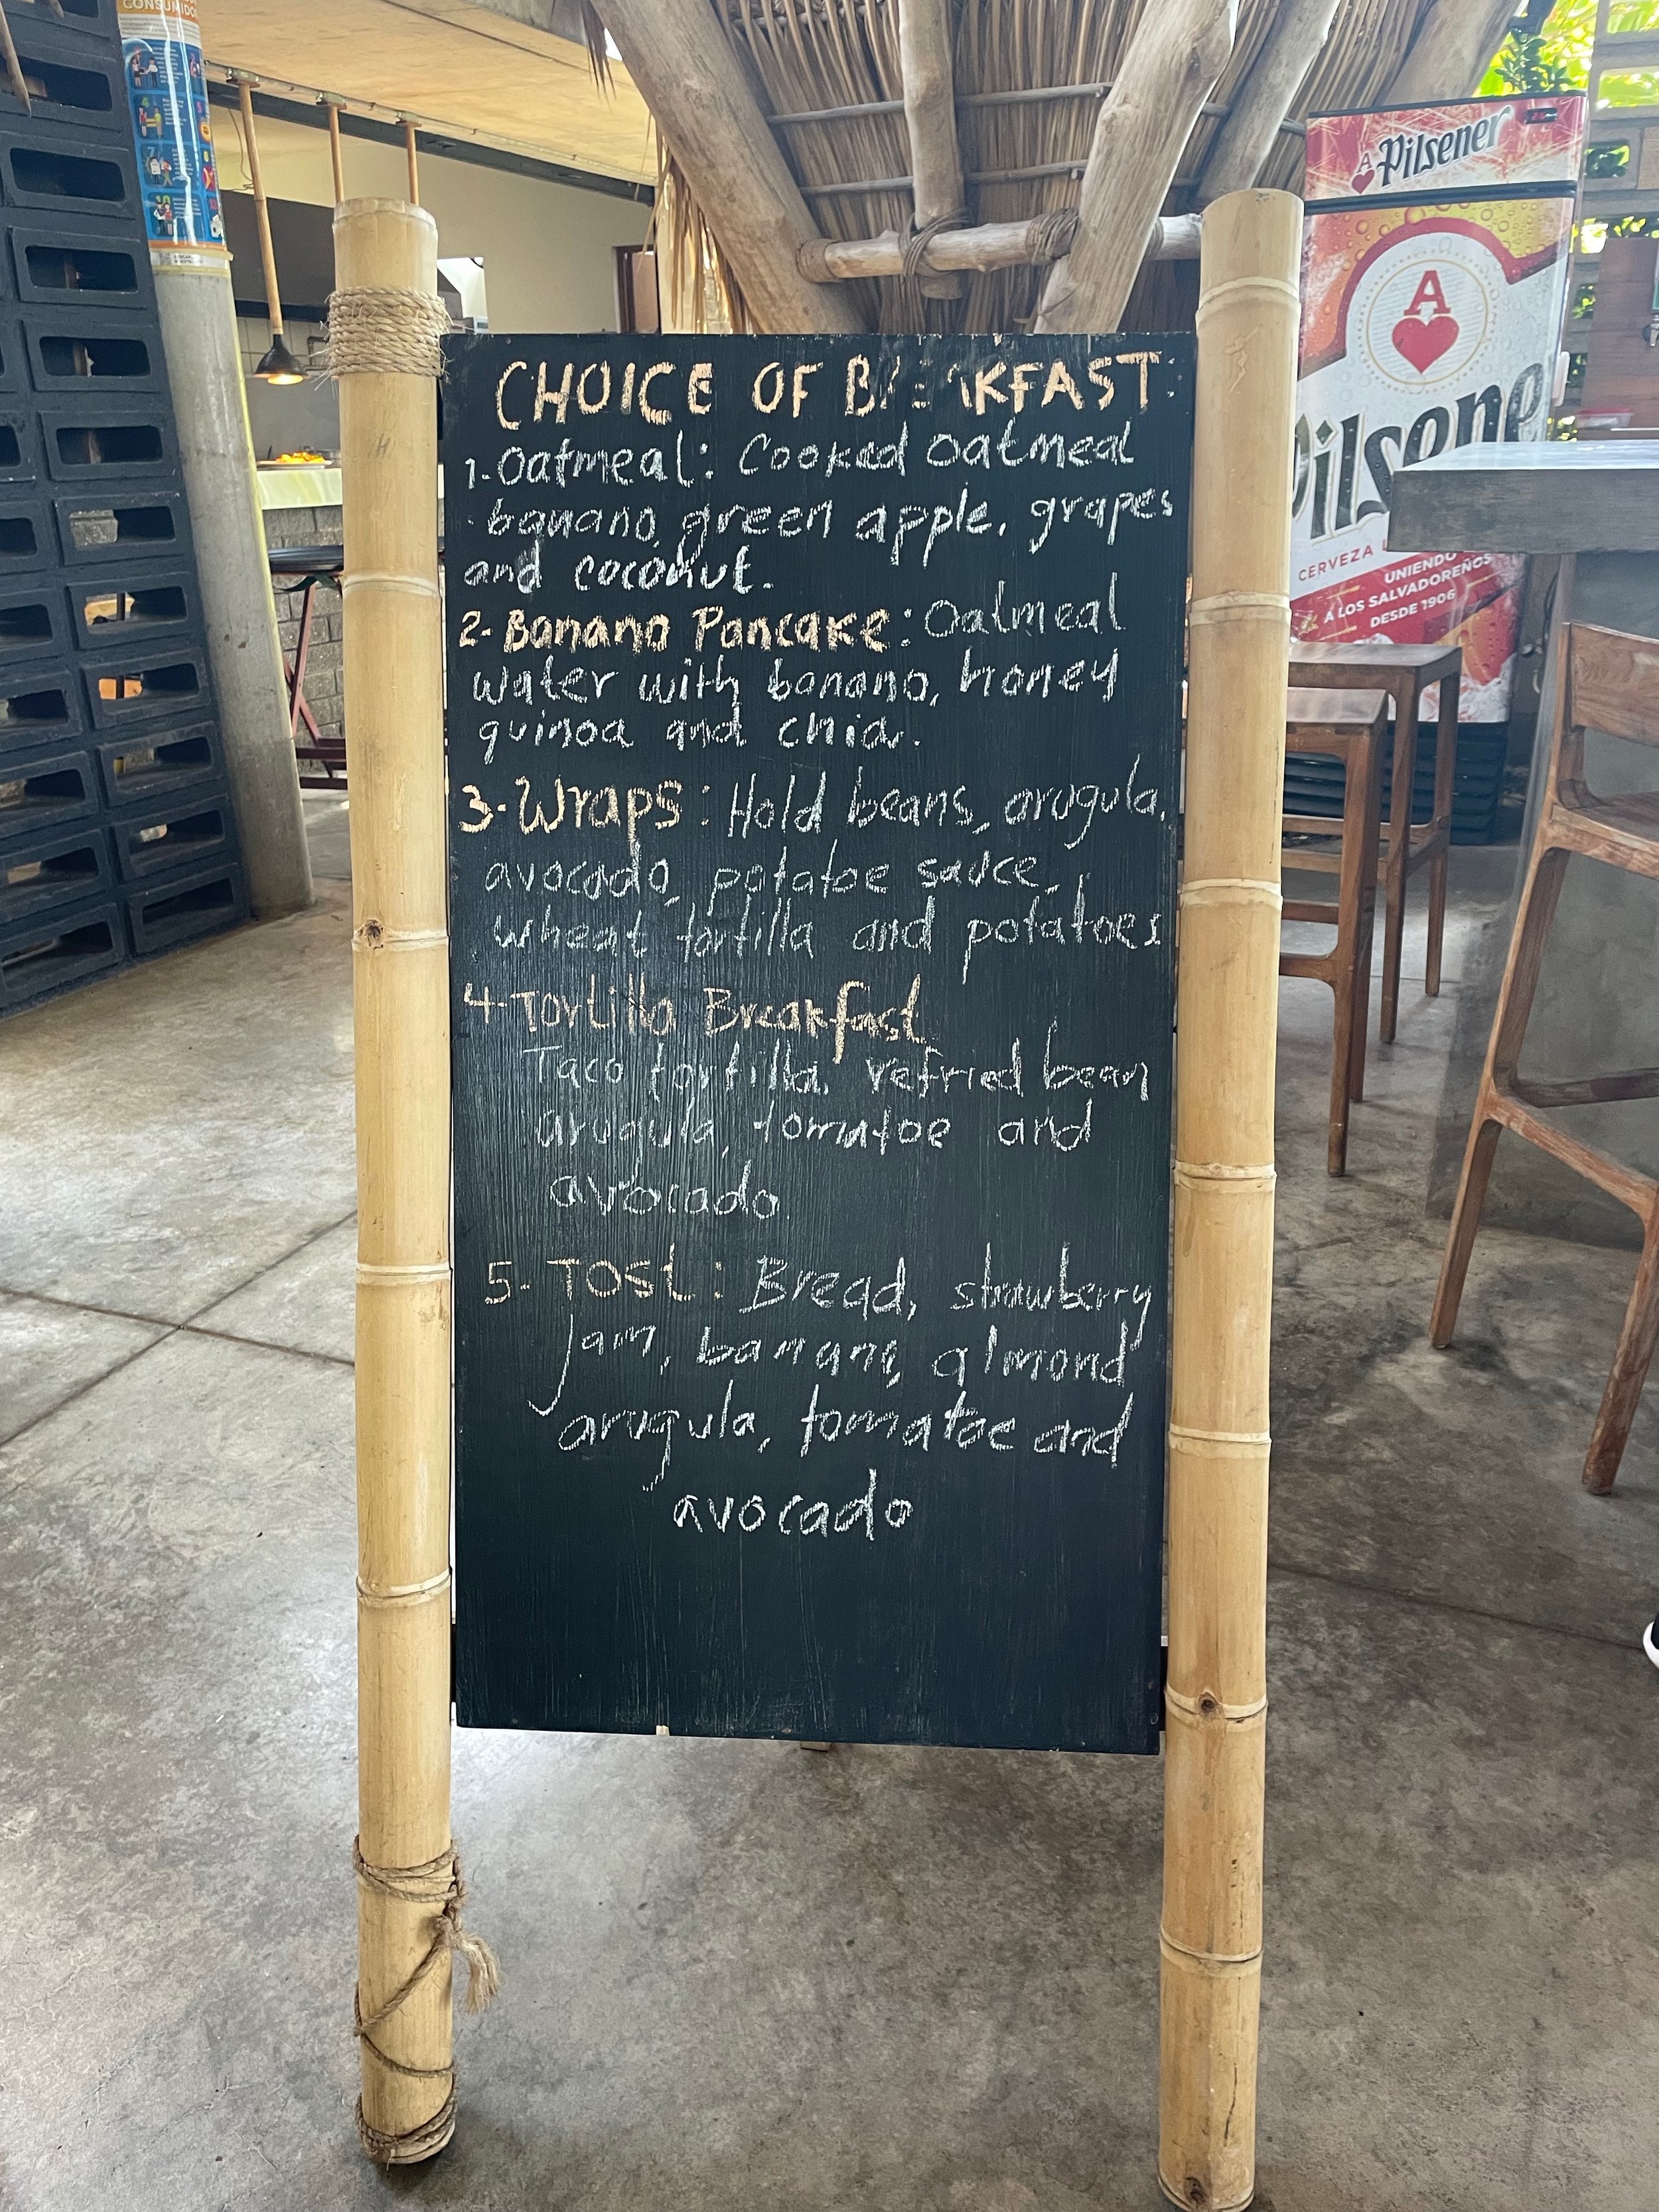 CONSUMIDO
Pilsener
A
Pilsene
CERVEZA
UNIENDO
A LOS SALVADOREÑOS
DESDE 1906
CHOICE OF BREAKFAST:
1-Oatmeal: Cooked oatmeal
banano, green apple, grapes
and coconut.
2-Banano Pancake: Oatmeal
water with banano, honey
quinoa and chia.
3-Wraps: Hold beans, arugula,
avocado, potatoe sauce,
wheat tortilla and potatoes
4-Tortilla Breakfast
Taco tortilla, refried bean
arugula, tomatoe and
avocado
5- TOSt: Bread, strawberry
jam, banana, almond
arugula, tomatoe and
avocado